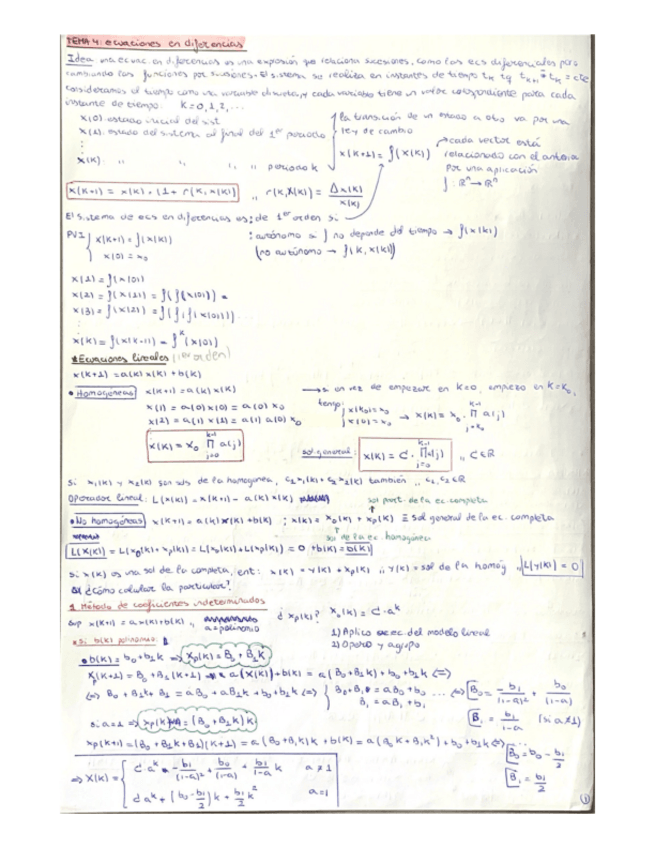 TEMA 4: ecuaciones en diferencias
Idea una ecuac. en diferencias es una expresión que relaciona sucesiones, como las ecs diferenciales pero
cambiando las funciones por sucesiones. El sistema se realiza en instantes de tiempo tk tq tk+1 - tk = cte
Consideramos el tiempo como una variable discreta, y cada variable tiene un valor correspondiente para cada
instante de tiempo: K=0,1,2,...
x(0): estado inicial del sist
x(1): estado del sistema al final del 1er periodo
x(K): " " " " periodo k
la transición de un estado a otro va por una
ley de cambio
x(K+1) = f(x(K))
cada vector está
relacionado con el anterior
por una aplicación
f: ℝⁿ → ℝⁿ
x(K+1) = x(K) · (1 + r(K, x(K))) ,, r(K, x(K)) = Δx(K) / x(K)
El sistema de ecs en diferencias es: de 1er orden si
PVI { x(K+1) = f(x(K))
x(0) = x₀
: autónomo si f no depende del tiempo → f(x(k))
(no autónomo → f(K, x(K))
x(1) = f(x(0))
x(2) = f(x(1)) = f(f(x(0))) =
x(3) = f(x(2)) = f(f(f(x(0))))
x(K) = f(x(K-1)) = f^K(x(0))
*Ecuaciones lineales (1er orden)
x(K+1) = a(K) x(K) + b(K)
• Homogéneas x(K+1) = a(k) x(K)
x(1) = a(0) x(0) = a(0) x₀
x(2) = a(1) x(1) = a(1) a(0) x₀
→ si en vez de empezar en K=0, empiezo en K=K₀,
tengo: { x(K₀) = x₀
x(0) = x₀ → x(K) = x₀ · ∏_{j=K₀}^{K-1} a(j)
x(K) = x₀ ∏_{j=0}^{K-1} a(j)
sol general: x(K) = C · ∏_{j=0}^{K-1} a(j) ,, C∈ℝ
Si x₁(K) y x₂(K) son sols de la homogénea, c₁x₁(K) + c₂x₂(K) también ,, c₁, c₂ ∈ℝ
Operador lineal: L(x(K)) = x(K+1) - a(K) x(K)
sol part. de la ec. completa
• No homogéneas x(K+1) = a(K) x(K) + b(K) ; x(K) = x₀(K) + xp(K) ≡ sol general de la ec. completa
sol de la ec. homogénea
L(x(K)) = L(x₀(K) + xp(K)) = L(x₀(K)) + L(xp(K)) = 0 + b(K) = b(K)
si x(K) es una sol de la completa, ent: x(K) = Y(K) + xp(K) ,, Y(K) = sol de la homóg ,, L(Y(K)) = 0
¿cómo calcular la particular?
1. Método de coeficientes indeterminados
Sup x(K+1) = a·x(K) + b(K) ,,
a = polinomio
¿xp(K)? x₀(K) = C · a^k
1) Aplico ec. del modelo lineal
2) Opero y agrupo
* si b(K) polinomio:
• b(K) = b₀ + b₁K ⇒ xp(K) = B₀ + B₁K
xp(K+1) = B₀ + B₁(K+1) = a(x(K)) + b(K) = a(B₀ + B₁K) + b₀ + b₁K ⇔
⇔ B₀ + B₁K + B₁ = aB₀ + aB₁K + b₀ + b₁K ⇔ { B₀ + B₁ = aB₀ + b₀
B₁ = aB₁ + b₁
... ⇔ B₀ = - b₁/(1-a)² + b₀/(1-a)
B₁ = b₁/(1-a) (si a≠1)
si a=1 ⇒ xp(K) = (B₀ + B₁K) K
xp(K+1) = (B₀ + B₁K + B₁)(K+1) = a(B₀ + B₁K)K + b(K) = a(B₀K + B₁K²) + b₀ + b₁K ⇔
B₀ = b₀ - b₁/2
B₁ = b₁/2
⇒ x(K) = { C a^k - b₁/(1-a)² + b₀/(1-a) + b₁/(1-a) k a≠1
C a^k + (b₀ - b₁/2) k + b₁/2 k² a=1
1